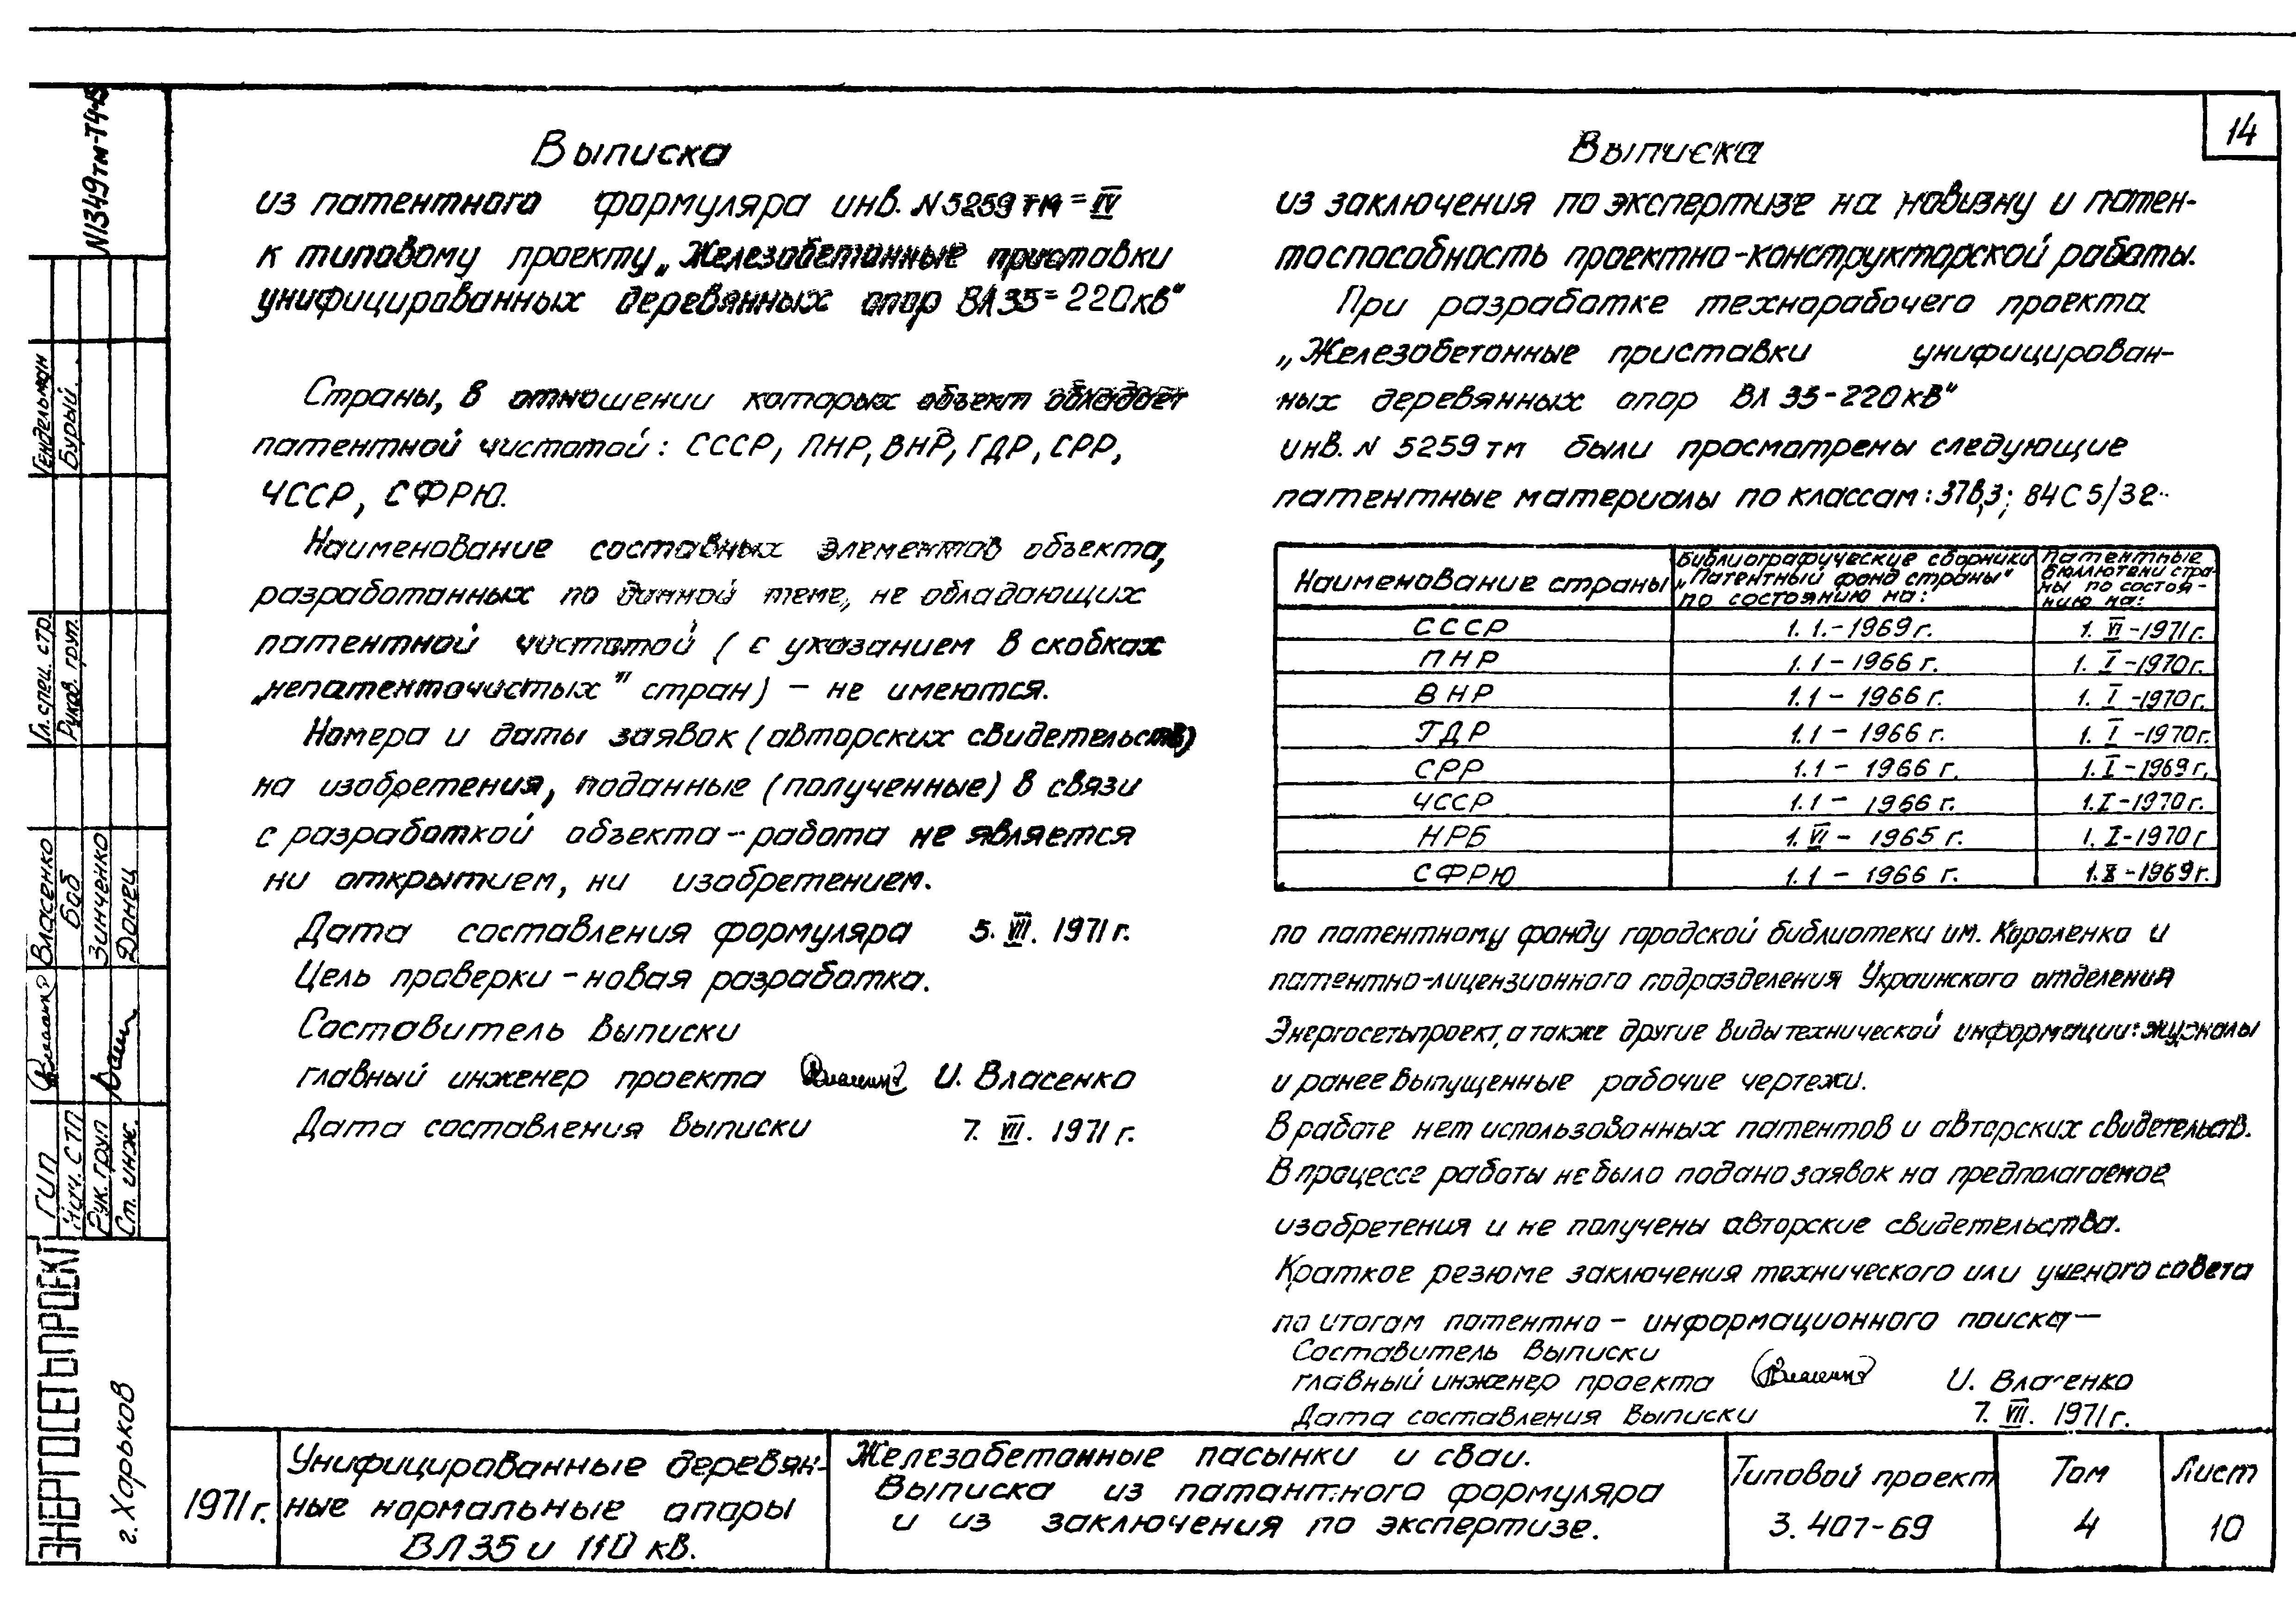 14
N1349тм-Т4-15
Выписка
из патентного формуляра инв. N 5259 тм-IV
к типовому проекту „Железобетонные приставки
унифицированных деревянных опор ВЛ 35-220кв"
Страны, в отношении которых объект обладает
патентной чистотой: СССР, ПНР, ВНР, ГДР, СРР,
ЧССР, СФРЮ.
Наименование составных элементов объекта,
разработанных по данной теме, не обладающих
патентной чистотой (с указанием в скобках
„непатенточистых" стран) – не имеются.
Номера и даты заявок (авторских свидетельств)
на изобретения, поданные (полученные) в связи
с разработкой объекта – работа не является
ни открытием, ни изобретением.
Дата составления формуляра 5. VII. 1971 г.
Цель проверки – новая разработка.
Составитель выписки
главный инженер проекта И. Власенко
Дата составления выписки 7. VII. 1971 г.
Выписка
из заключения по экспертизе на новизну и патен-
тоспособность проектно-конструкторской работы.
При разработке технорабочего проекта
„Железобетонные приставки унифицирован-
ных деревянных опор ВЛ 35-220кв"
инв. N 5259тм были просмотрены следующие
патентные материалы по классам: 37в,3; 84С 5/32
Наименование страны | Библиографические сборники „Патентный фонд страны" по состоянию на: | Патентные бюллютени стра- ны по состоя- нию на:
СССР | 1. 1.-1969 г. | 1. VI -1971 г.
ПНР | 1.1 – 1966 г. | 1. I -1970 г.
ВНР | 1.1 – 1966 г. | 1. I -1970 г.
ГДР | 1.1 – 1966 г. | 1. I -1970 г.
СРР | 1.1 – 1966 г. | 1. I -1969 г.
ЧССР | 1.1 – 1966 г. | 1. I -1970 г.
НРБ | 1. VI – 1965 г. | 1. I -1970 г
СФРЮ | 1.1 – 1966 г. | 1. X -1969 г.
по патентному фонду городской библиотеки им. Короленко и
патентно-лицензионного подразделения Украинского отделения
Энергосетьпроект, а также другие виды технической информации: журналы
и ранее выпущенные рабочие чертежи.
В работе нет использованных патентов и авторских свидетельств.
В процессе работы не было подано заявок на предполагаемое
изобретения и не получены авторские свидетельства.
Краткое резюме заключения технического или ученого совета
по итогам патентно – информационного поиска —
Составитель выписки
главный инженер проекта И. Власенко
Дата составления выписки 7. VII. 1971 г.
Гл. спец. стр. Гендельман
Руков. груп. Бурый
ГИП Власенко
Нач. СТП Боб
Рук. груп Зинченко
Ст. инж. Донец
ЭНЕРГОСЕТЬПРОЕКТ
г. Харьков
1971 г.
Унифицированные деревян-
ные нормальные опоры
ВЛ 35 и 110 кв.
Железобетонные пасынки и сваи.
Выписка из патантного формуляра
и из заключения по экспертизе.
Типовой проект
3. 407-69
Том
4
Лист
10